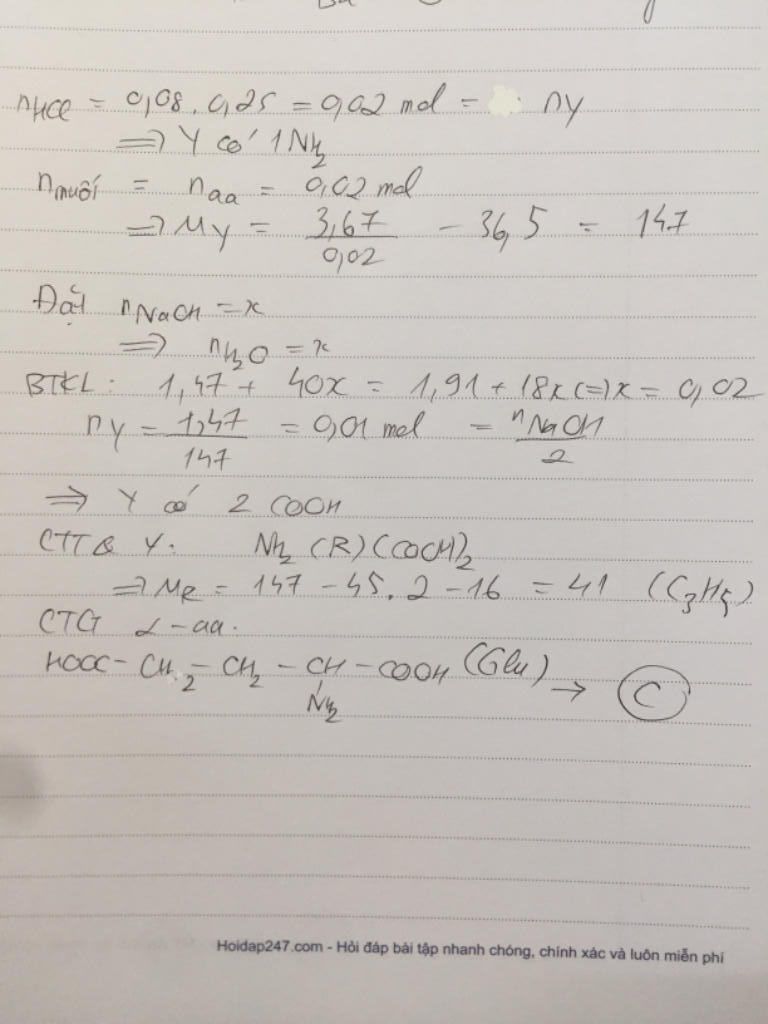 nHCl = 0,08 . 0,25 = 0,02 mol = nY
=> Y có 1 NH2
nmuối = naa = 0,02 mol
=> MY = 3,67/0,02 - 36,5 = 147
Đặt nNaOH = x
=> nH2O = x
BTKL: 1,47 + 40x = 1,91 + 18x (=) x = 0,02
nY = 1,47/147 = 0,01 mol = nNaOH/2
=> Y có 2 COOH
CTTQ Y: NH2 (R)(COOH)2
=> MR = 147 - 45.2 - 16 = 41 (C3H5)
CTG α-aa.
HOOC - CH2 - CH2 - CH - COOH (Glu) → C
NH2
Hoidap247.com - Hỏi đáp bài tập nhanh chóng, chính xác và luôn miễn phí